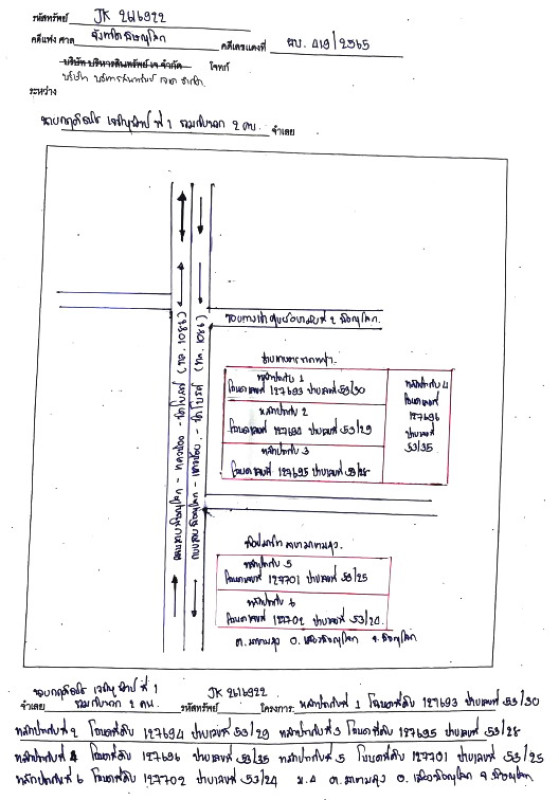 รหัสทรัพย์ JK 2616922
คดีแพ่ง ศาล จังหวัดพิษณุโลก คดีเลขแดงที่ ผบ. 419/2565
บริษัท บริหารสินทรัพย์ เจ จำกัด โจทก์
บริษัท บริหารสินทรัพย์ เจเค จำกัด
ระหว่าง
ที่ 1 รวมกับพวก 2 คน. จำเลย
ถนนสาย พิษณุโลก - - วัดโบสถ์ (ทล. 1086)
ถนนสาย พิษณุโลก - - วัดโบสถ์ (ทล. 1086)
2 พิษณุโลก.
หลักประกัน 1
โฉนดเลขที่ 127693 บ้านเลขที่ 53/30
หลักประกัน 2
โฉนดเลขที่ บ้านเลขที่ 53/29
หลักประกัน 3
โฉนดเลขที่ 127695 บ้านเลขที่ 53/28
หลักประกัน 4
โฉนดเลขที่
127696
บ้านเลขที่
53/35
สาขามะขามสูง.
หลักประกัน 5
โฉนดเลขที่ 127701 บ้านเลขที่ 53/25
หลักประกัน 6
โฉนดเลขที่ 127702 บ้านเลขที่ 53/24.
ต.มะขามสูง อ.เมืองพิษณุโลก จ.พิษณุโลก
ที่ 1
จำเลย รวมกับพวก 2 คน. รหัสทรัพย์ JK 2616922 โครงการ: หลักประกันที่ 1 โฉนดที่ดิน 127693 บ้านเลขที่ 53/30
หลักประกันที่ 2 โฉนดที่ดิน 127694 บ้านเลขที่ 53/29 หลักประกันที่ 3 โฉนดที่ดิน 127695 บ้านเลขที่ 53/28
หลักประกันที่ 4 โฉนดที่ดิน 127696 บ้านเลขที่ 53/35 หลักประกันที่ 5 โฉนดที่ดิน 127701 บ้านเลขที่ 53/25
หลักประกันที่ 6 โฉนดที่ดิน 127702 บ้านเลขที่ 53/24 ม.4 ต.มะขามสูง อ.เมืองพิษณุโลก จ.พิษณุโลก